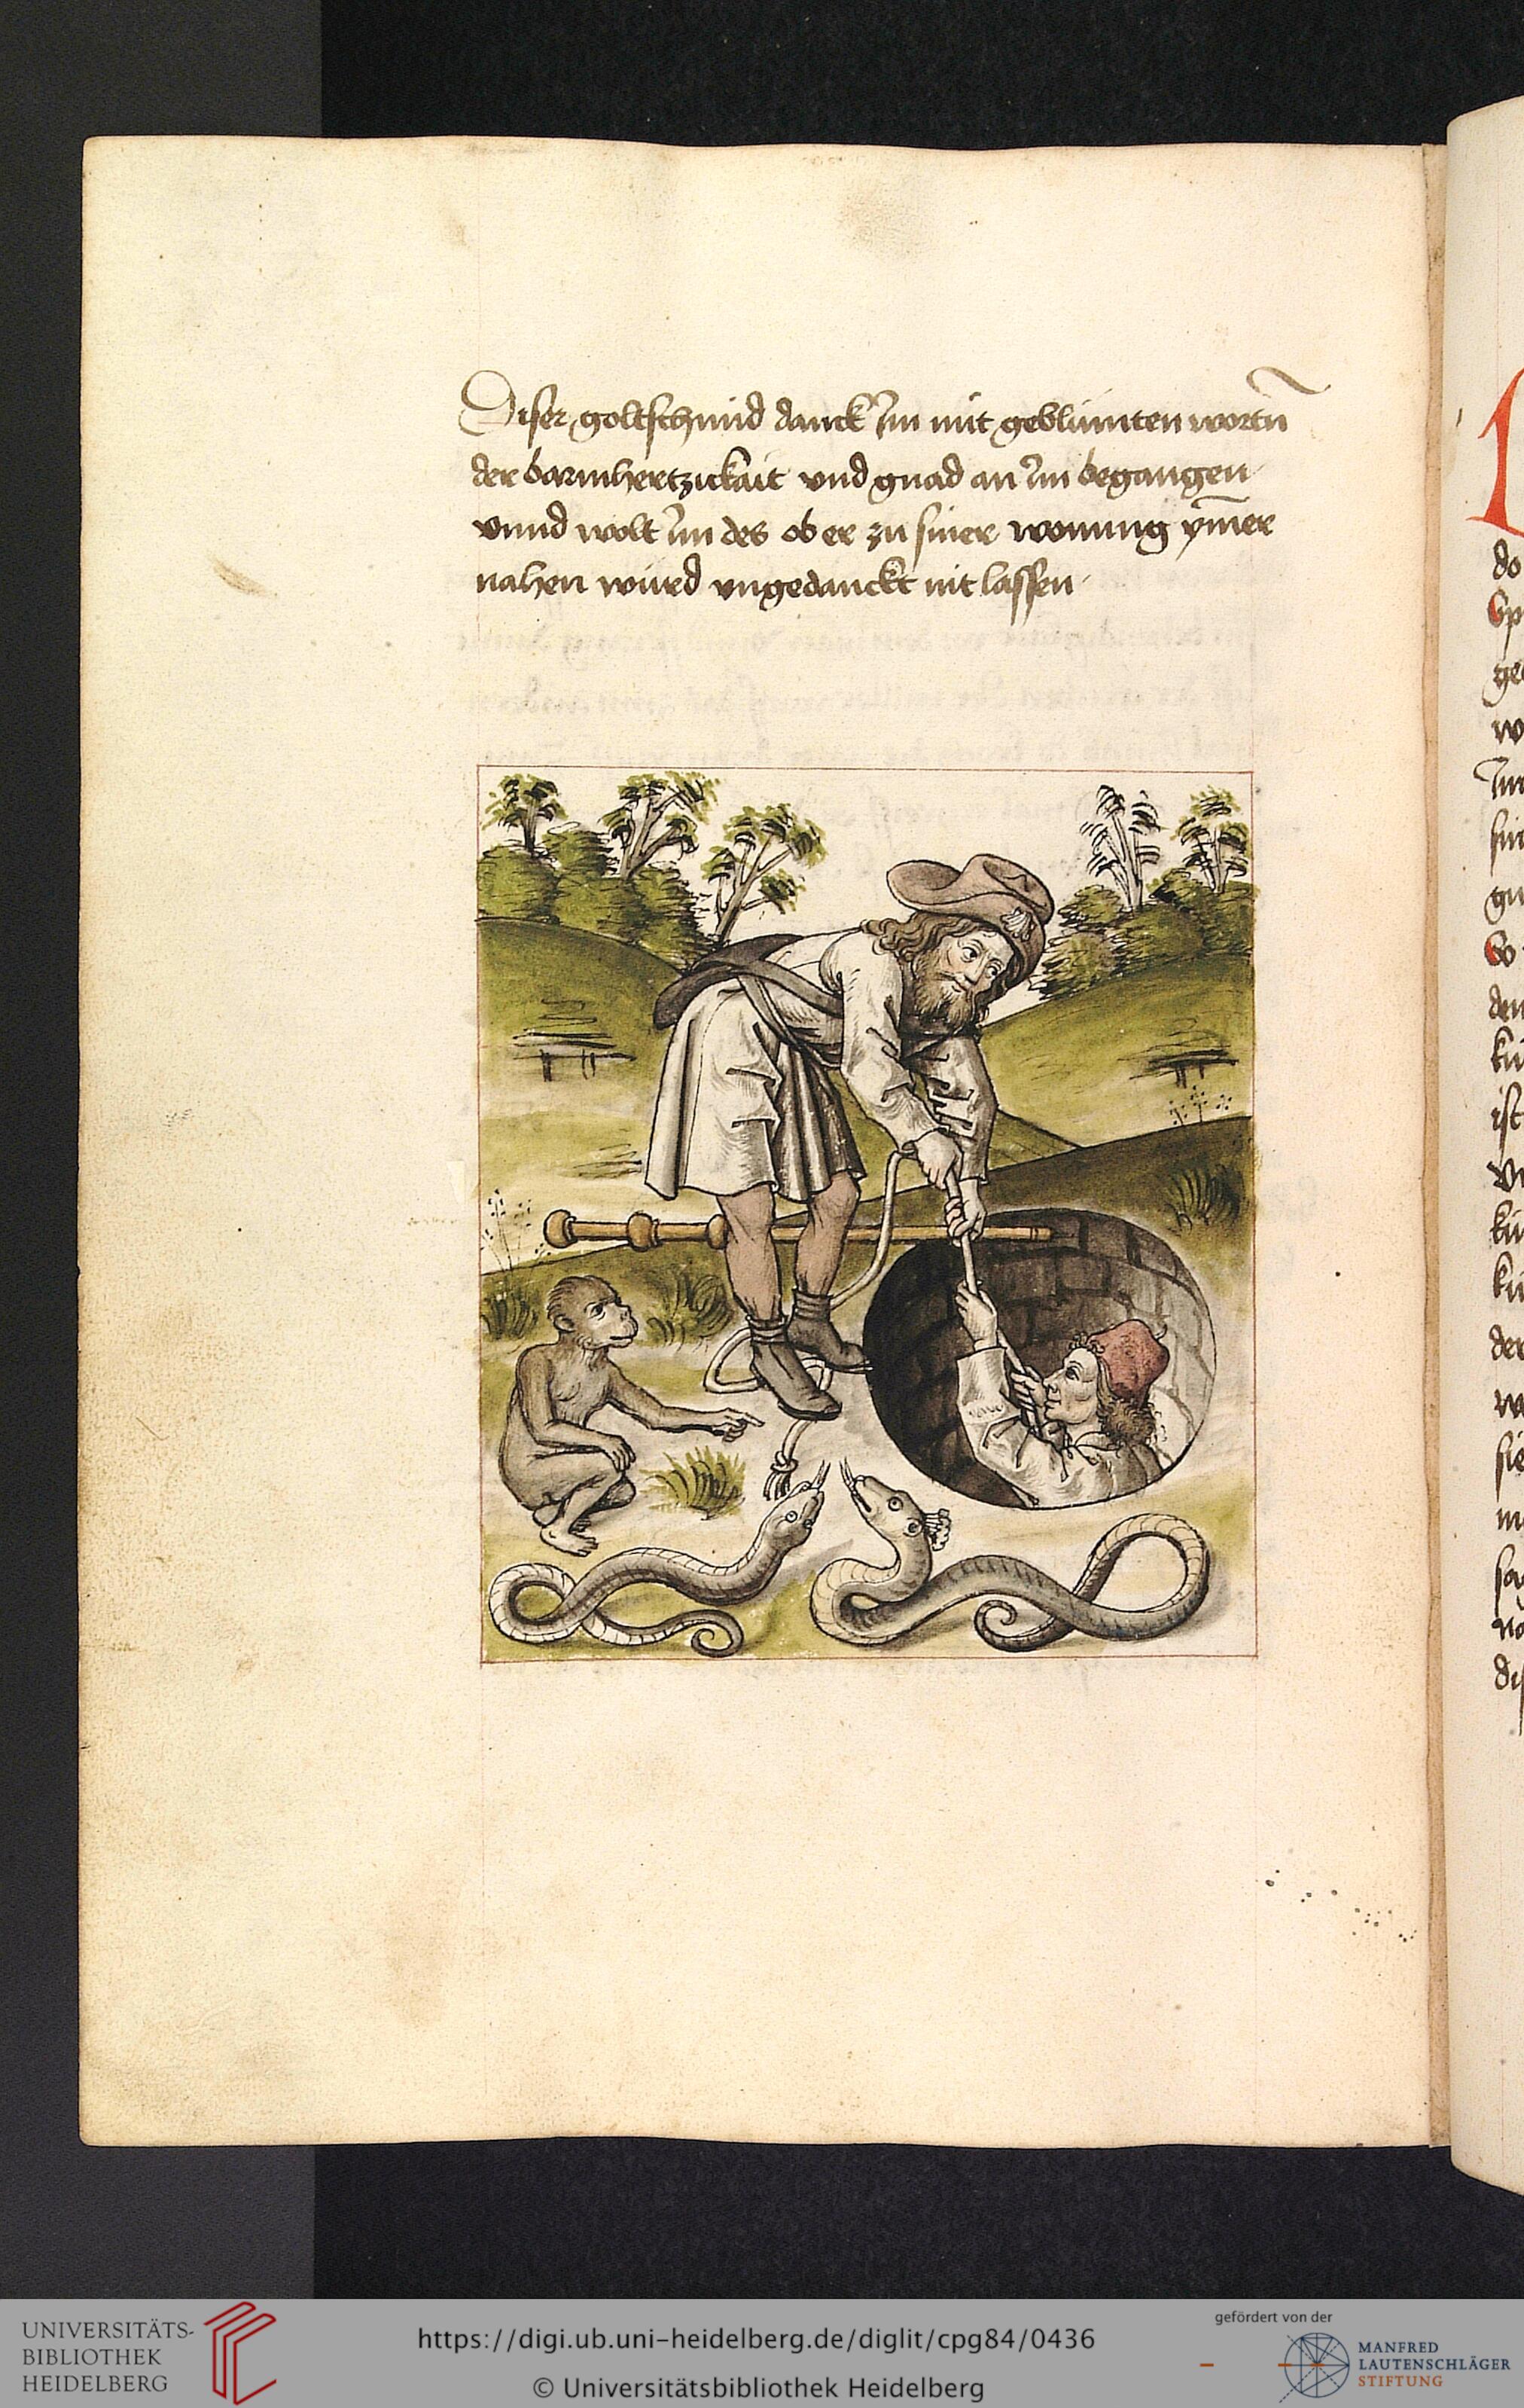 Diser goltschmid danck im mit geblümten wortñ
der barmhertzickait vnd gnad an im begangen
vnnd wolt im des ob er zu siner wonung ym̄er
nahen würd vngedanckt nit lassen
do
ge
w
im
sin
gu
So
den
ist
der
w
sie
UNIVERSITÄTS-
BIBLIOTHEK
HEIDELBERG
https://digi.ub.uni-heidelberg.de/diglit/cpg84/0436
© Universitätsbibliothek Heidelberg
gefördert von der
MANFRED
LAUTENSCHLÄGER
STIFTUNG